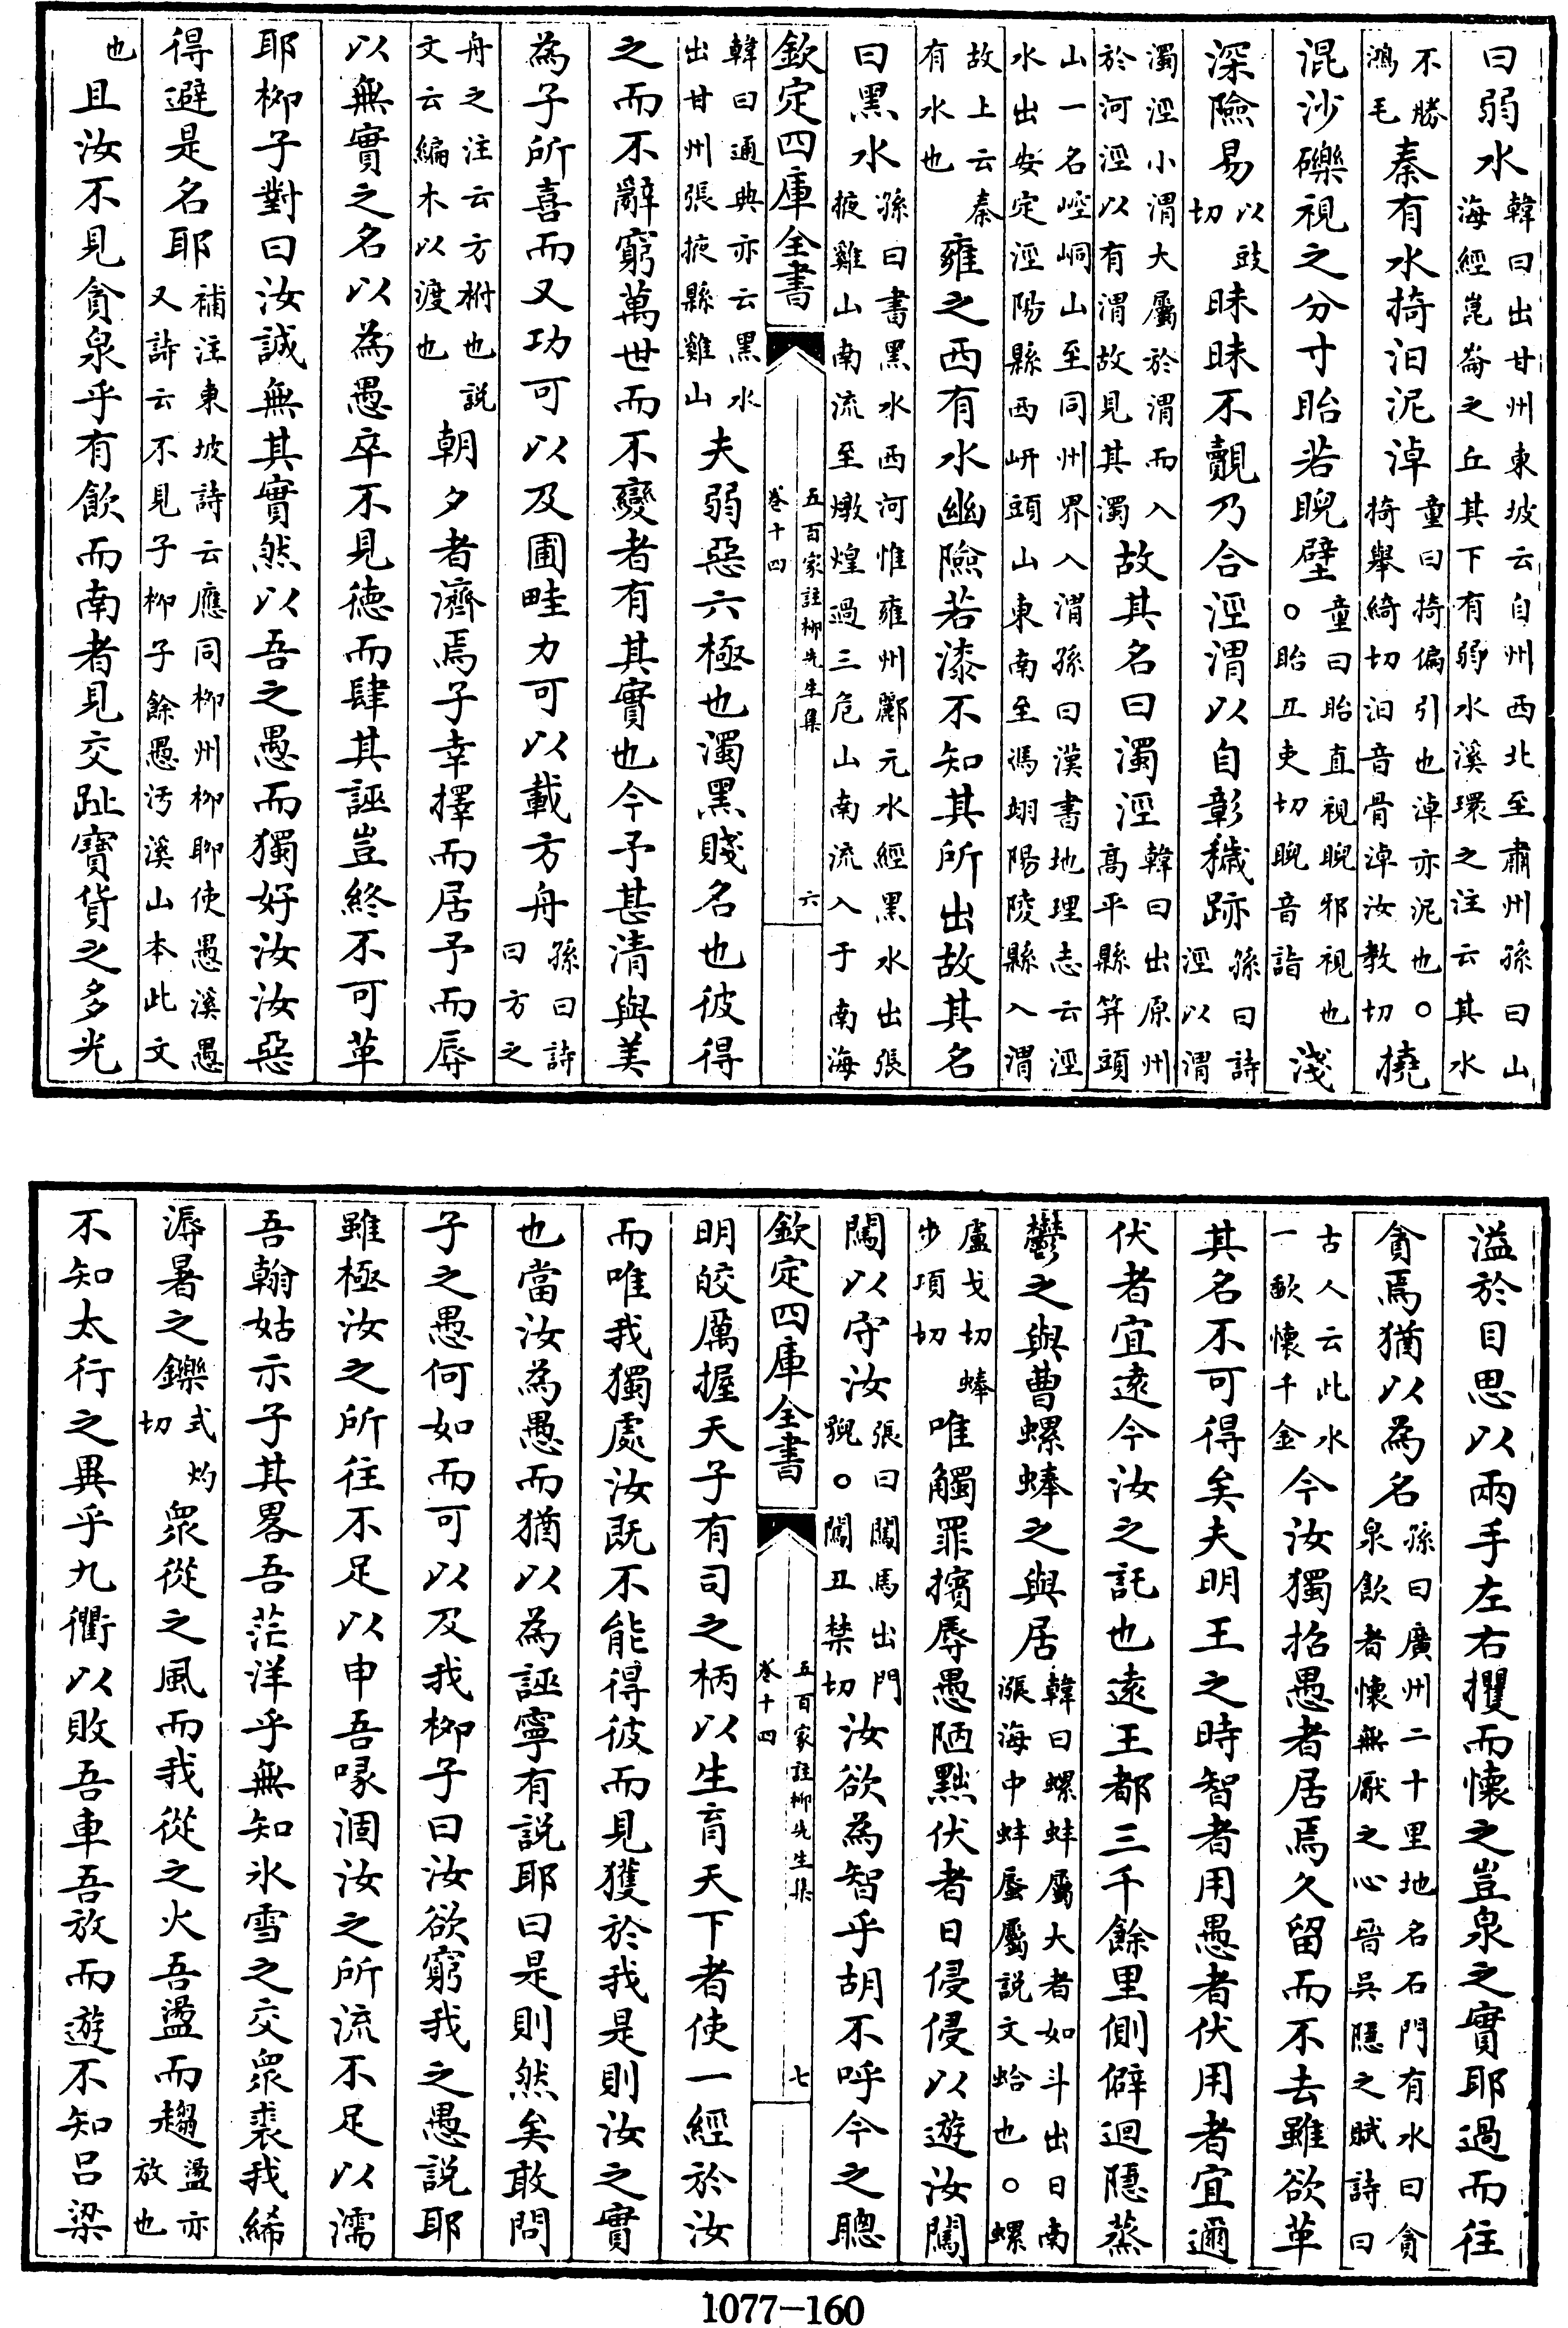 曰弱水韓曰出甘州東坡云自州西北至肅州孫曰山海經崑崙之丘其下有弱水溪環之注云其水
不勝鴻毛秦有水掎汩泥淖童曰掎偏引也淖亦泥也○掎舉綺切汩音骨淖汝教切撓
混沙礫視之分寸眙若睨壁童曰眙直視睨邪視也○眙丑吏切睨音詣淺
深險易以豉切昧昧不覿乃合涇渭以自彰穢跡孫曰詩涇以渭
濁涇小渭大屬於渭而入於河涇以有渭故見其濁故其名曰濁涇韓曰出原州高平縣筓頭
山一名崆峒山至同州界入渭孫曰漢書地理志云涇水出安定涇陽縣西岍頭山東南至馮翊陽陵縣入渭
故上云秦有水也雍之西有水幽險若漆不知其所出故其名
曰黑水孫曰書黑水西河惟雍州酈元水經黑水出張掖雞山南流至燉煌過三危山南流入于南海
欽定四庫全書
五百家註柳先生集
卷十四
六
韓曰通典亦云黑水出甘州張掖縣雞山夫弱惡六極也濁黑賤名也彼得
之而不辭窮萬世而不變者有其實也今予甚清與美
為子所喜而又功可以及圃畦力可以載方舟孫曰詩曰方之
舟之注云方柎也說文云編木以渡也朝夕者濟焉子幸擇而居予而辱
以無實之名以為愚卒不見德而肆其誣豈終不可革
耶柳子對曰汝誠無其實然以吾之愚而獨好汝汝惡
得避是名耶補注東坡詩云應同柳州柳聊使愚溪愚又詩云不見子柳子餘愚汚溪山本此文
也且汝不見貪泉乎有飲而南者見交趾寶貨之多光
溢於目思以兩手左右攫而懷之豈泉之實耶過而往
貪焉猶以為名孫曰廣州二十里地名石門有水曰貪泉飲者懷無厭之心晉吳隱之賦詩曰
古人云此水一歃懷千金今汝獨招愚者居焉久留而不去雖欲革
其名不可得矣夫明王之時智者用愚者伏用者宜邇
伏者宜遠今汝之託也遠王都三千餘里側僻迴隱蒸
鬱之與曹螺蜯之與居韓曰螺蚌屬大者如斗出日南漲海中蚌蜃屬說文蛤也○螺
盧戈切蜯步項切唯觸罪擯辱愚陋黜伏者日侵侵以遊汝闖
闖以守汝張曰闖馬出門貎○闖丑禁切汝欲為智乎胡不呼今之聰
欽定四庫全書
五百家註柳先生集
卷十四
七
明皎厲握天子有司之柄以生育天下者使一經於汝
而唯我獨處汝既不能得彼而見獲於我是則汝之實
也當汝為愚而猶以為誣寧有說耶曰是則然矣敢問
子之愚何如而可以及我柳子曰汝欲窮我之愚說耶
雖極汝之所往不足以申吾喙涸汝之所流不足以濡
吾翰姑示子其畧吾茫洋乎無知氷雪之交衆裘我絺
溽暑之鑠式灼切衆從之風而我從之火吾盪而趨盪亦放也
不知太行之異乎九衢以敗吾車吾放而遊不知呂梁
1077—160